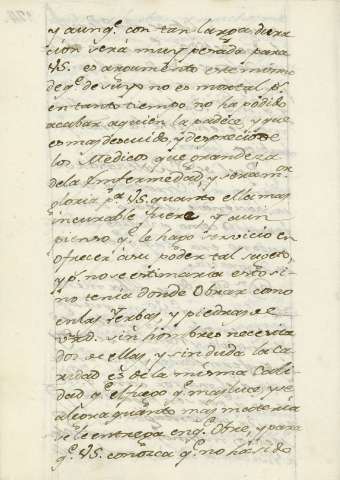 y aunq.e con tan larga dura
cion será muy penada para
VS. es argumento este mismo
de q.e de suyo no es mortal p.s
en tanto tiempo no ha podido
acabar aquien la padece, y que
es mas descuido, y desprecio de
los Medicos que grandeza
de la Enfermedad, y será m.or
gloria p.a VS. quanto ella mas
incurable fuere, y aun
pienso q.e le hago servicio en
ofrecer à su poder tal sugeto,
y p.s no se estimaria esto si
no tenia donde Obrar como
en las Yerbas, y piedras de
virt.d sin hombres necesita
dos de ellas, y sin duda la Ca
ridad es de la misma Cali
dad q.e el fuego q.e mas luce, y se
alegra quanto mas materia
se le entrega en q.e Obre, y para
q.e VS. conozca q.e no ha sido